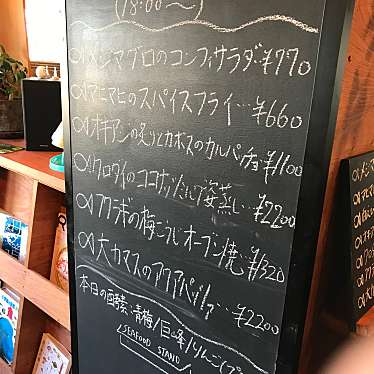 (18:00〜)
メジマグロのコンフィサラダ…¥770
マニマヒのスパイスフライ…¥660
オキアジの炙りとカボスのカルパッチョ¥1100
クロワイのココナッツだしで姿蒸し…¥2200
アクラギの梅こうじオーブン焼…¥1320
大カマスのアクアパッツァ…¥2200
本日の酵素:青梅/巨峰/りんご(プ
SEAFOOD STAND